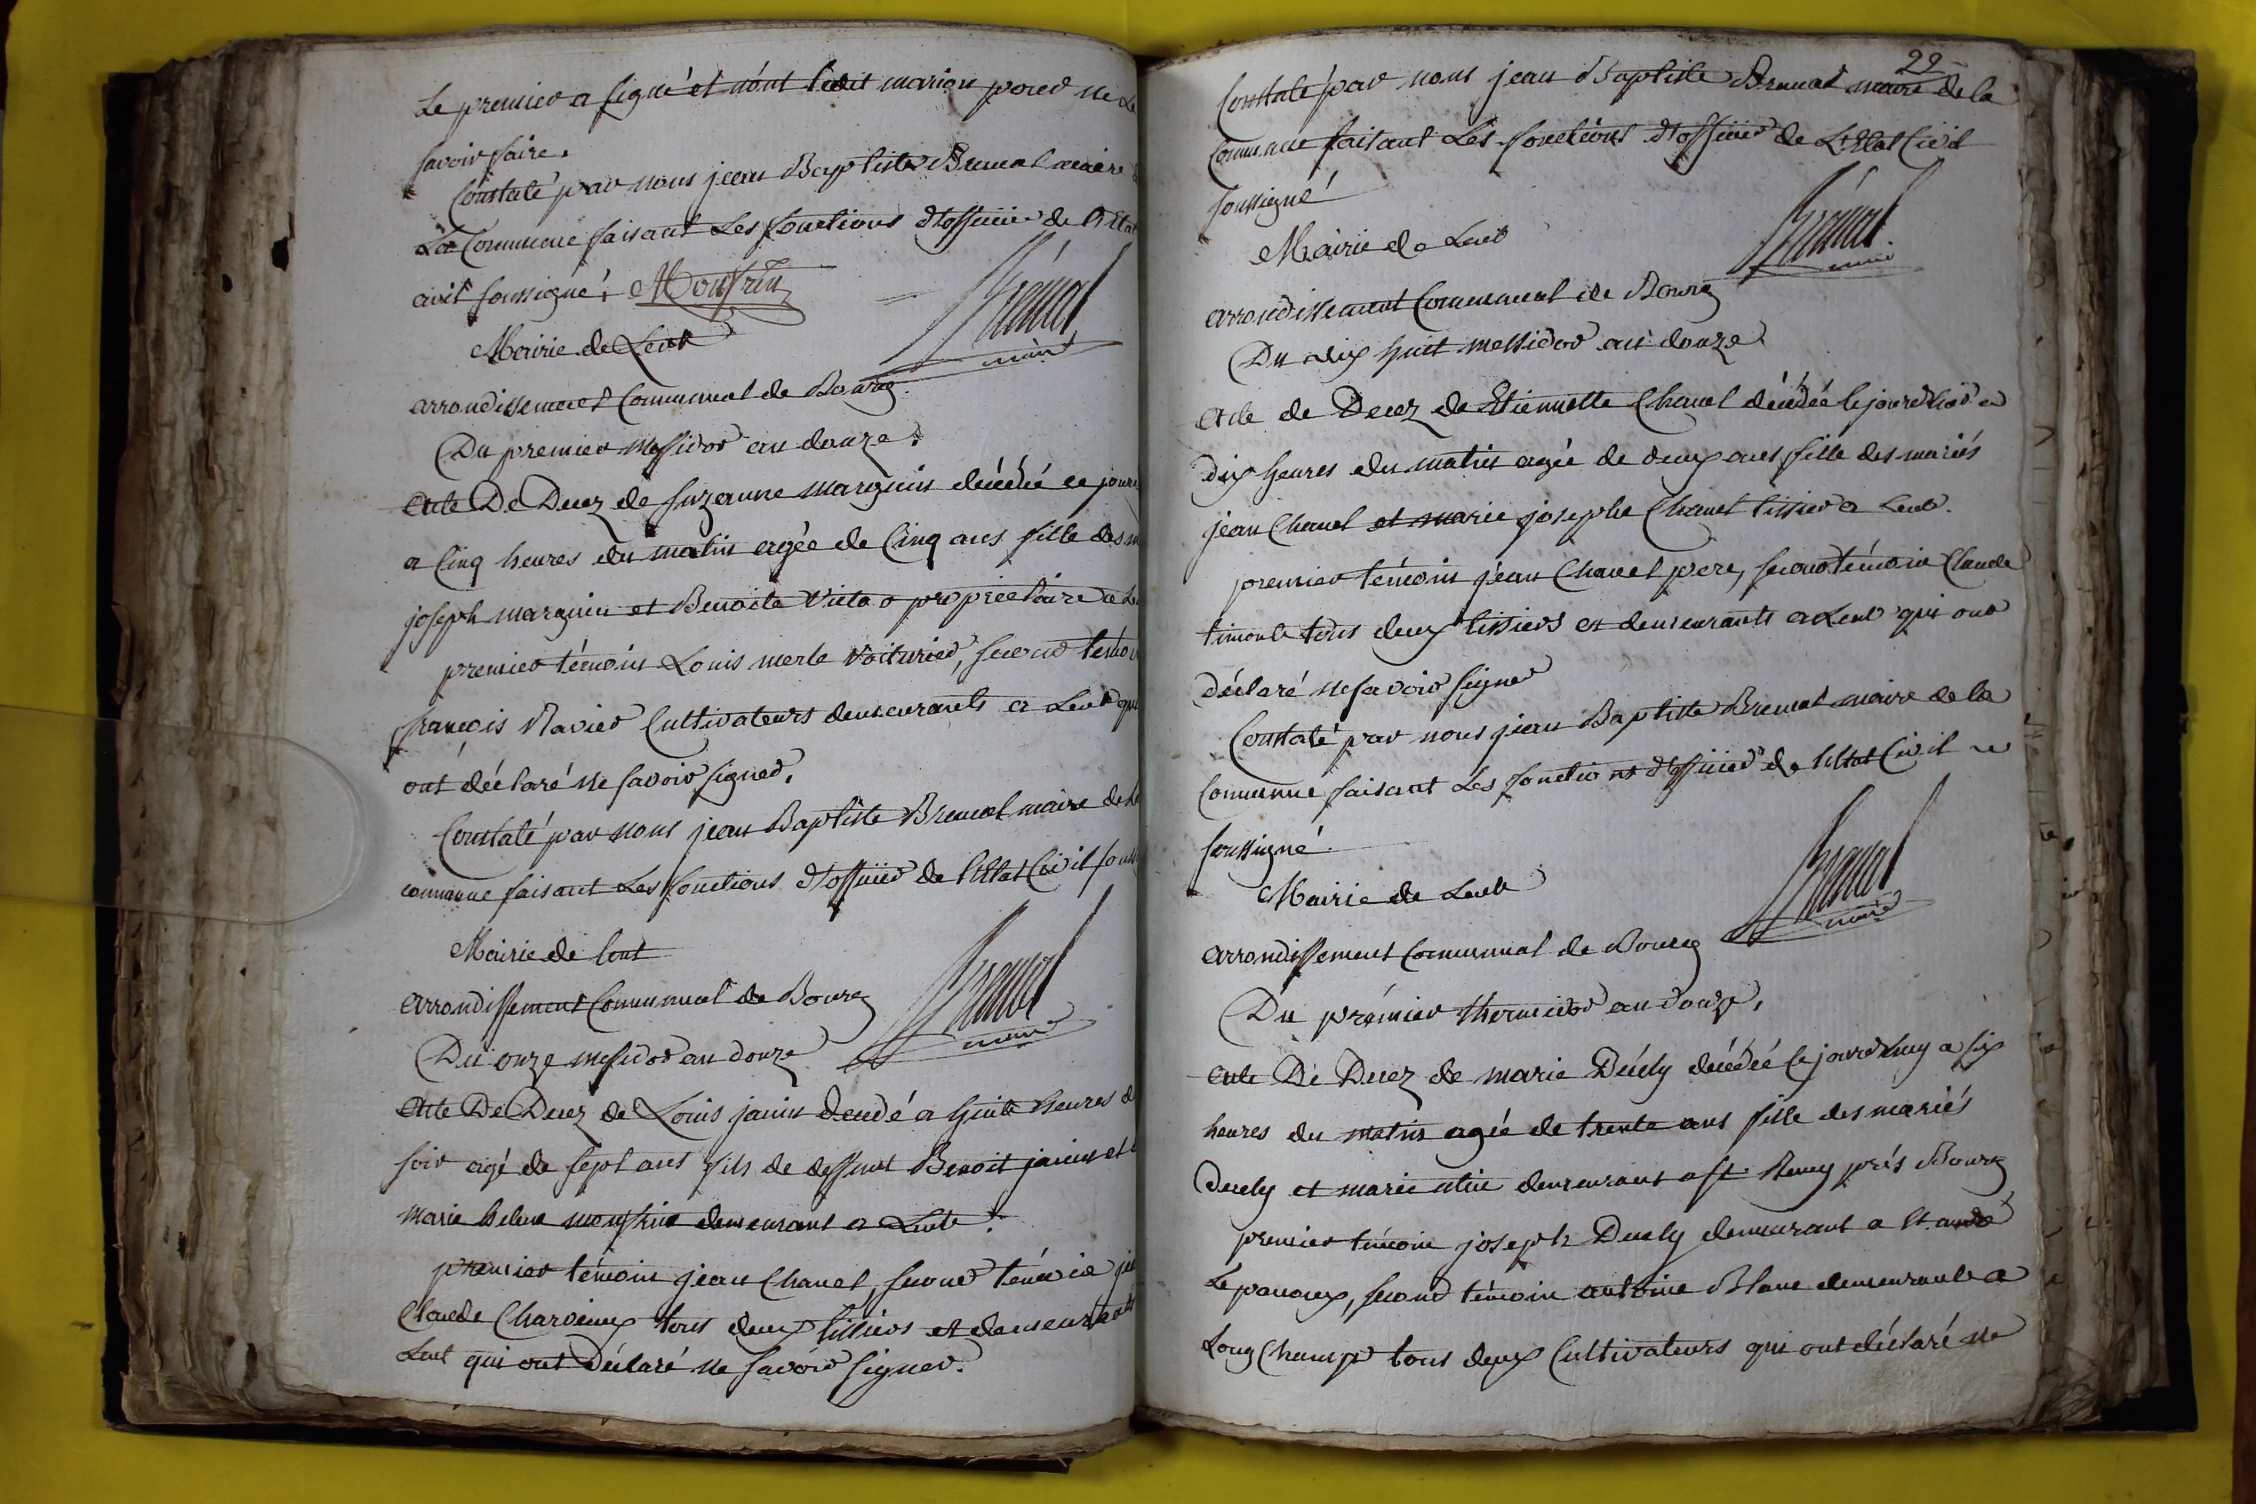 Le premier a signé et nònt ledit marion pour ne Le
savoir faire.
Constaté par nous jean Baptiste Brenal maire
La Commune faisant Les fonctions d'officier de l'Etat
civil soussigné, Monfrin
Brénal
maire
Mairie de Lent
arrondissement Communal de Bourg
Du premier messidor an douze.
Acte De Decez de suzanne marguin décédé ce jour
a Cinq heures du matin agée de Cinq ans fille des m
joseph marguin et Benoite propriétaire a Le
premier témoin Louis merle voiturier, second témoi
françois Ravier Cultivateurs demeurants a Lent qui
ont déclaré ne savoir signer.
Constaté par nous jean Baptiste Brenal maire de la
commune faisant Les fonctions d'officier de l'Etat Civil souss
Mairie de lent
Brenal
maire
arrondissement Communal de Bourg
Du onze messidor an douze
Acte De Decez de Louis janin decedé a huite heures d
soir agé de sept ans fils de deffunt Benoit janin et
marie helene monfrin demeurant a Lent.
premier témoin jean Chanel, second témoin je
Claude Charvieux tous deux tissiers et demeurants
Lent qui ont Déclaré ne savoir signer.
29
Constaté par nous jean Baptiste Brenal maire de la
Commune faisant Les fonctions d'officier de L'Etat Civil
soussigné
Brénal
maire
Mairie de Lent
arrondissement Communal de Bourg
Du dix huit messidor an douze
Acte de Decez de Etiennette Chanel décédée le jour d'hier a
dix heures du matin agée de deux ans fille des mariés
jean Chanel et marie josephe Chanel tissier a Lent.
premier témoin jean Chanel pere, second témoin Claude
timonle tous deux tissiers et demeurants a Lent qui ont
déclaré ne savoir signer
Constaté par nous jean Baptiste Brenal maire de la
Commune faisant Les fonctions d'officier de l'Etat Civil
soussigné.
Brenal
maire
Mairie de Lent
arrondissement Communal de Bourg
Du prémier thermidor an douze,
Acte De Decez de marie Décly décédée ce jourd'huy a six
heures du matin agée de trente ans fille des mariés
Decly et marie demeurant a st. Remy prés Bourg
premier témoin joseph Decly demeurant a st. andé
Le panoux, second témoin antoine Blanc demeurant a
Long Champ tous deux Cultivateurs qui ont déclaré ne